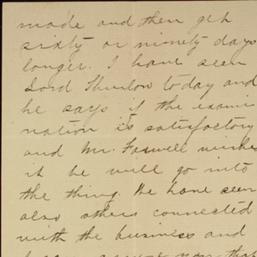 made and then get
sixty or ninety days
longer. I have seen
Lord Thurlow today and
he says if the exami
nation is satisfactory
and Mr. Farwell wishes
it he will go into
the thing. We have seen
also others connected
with the business and